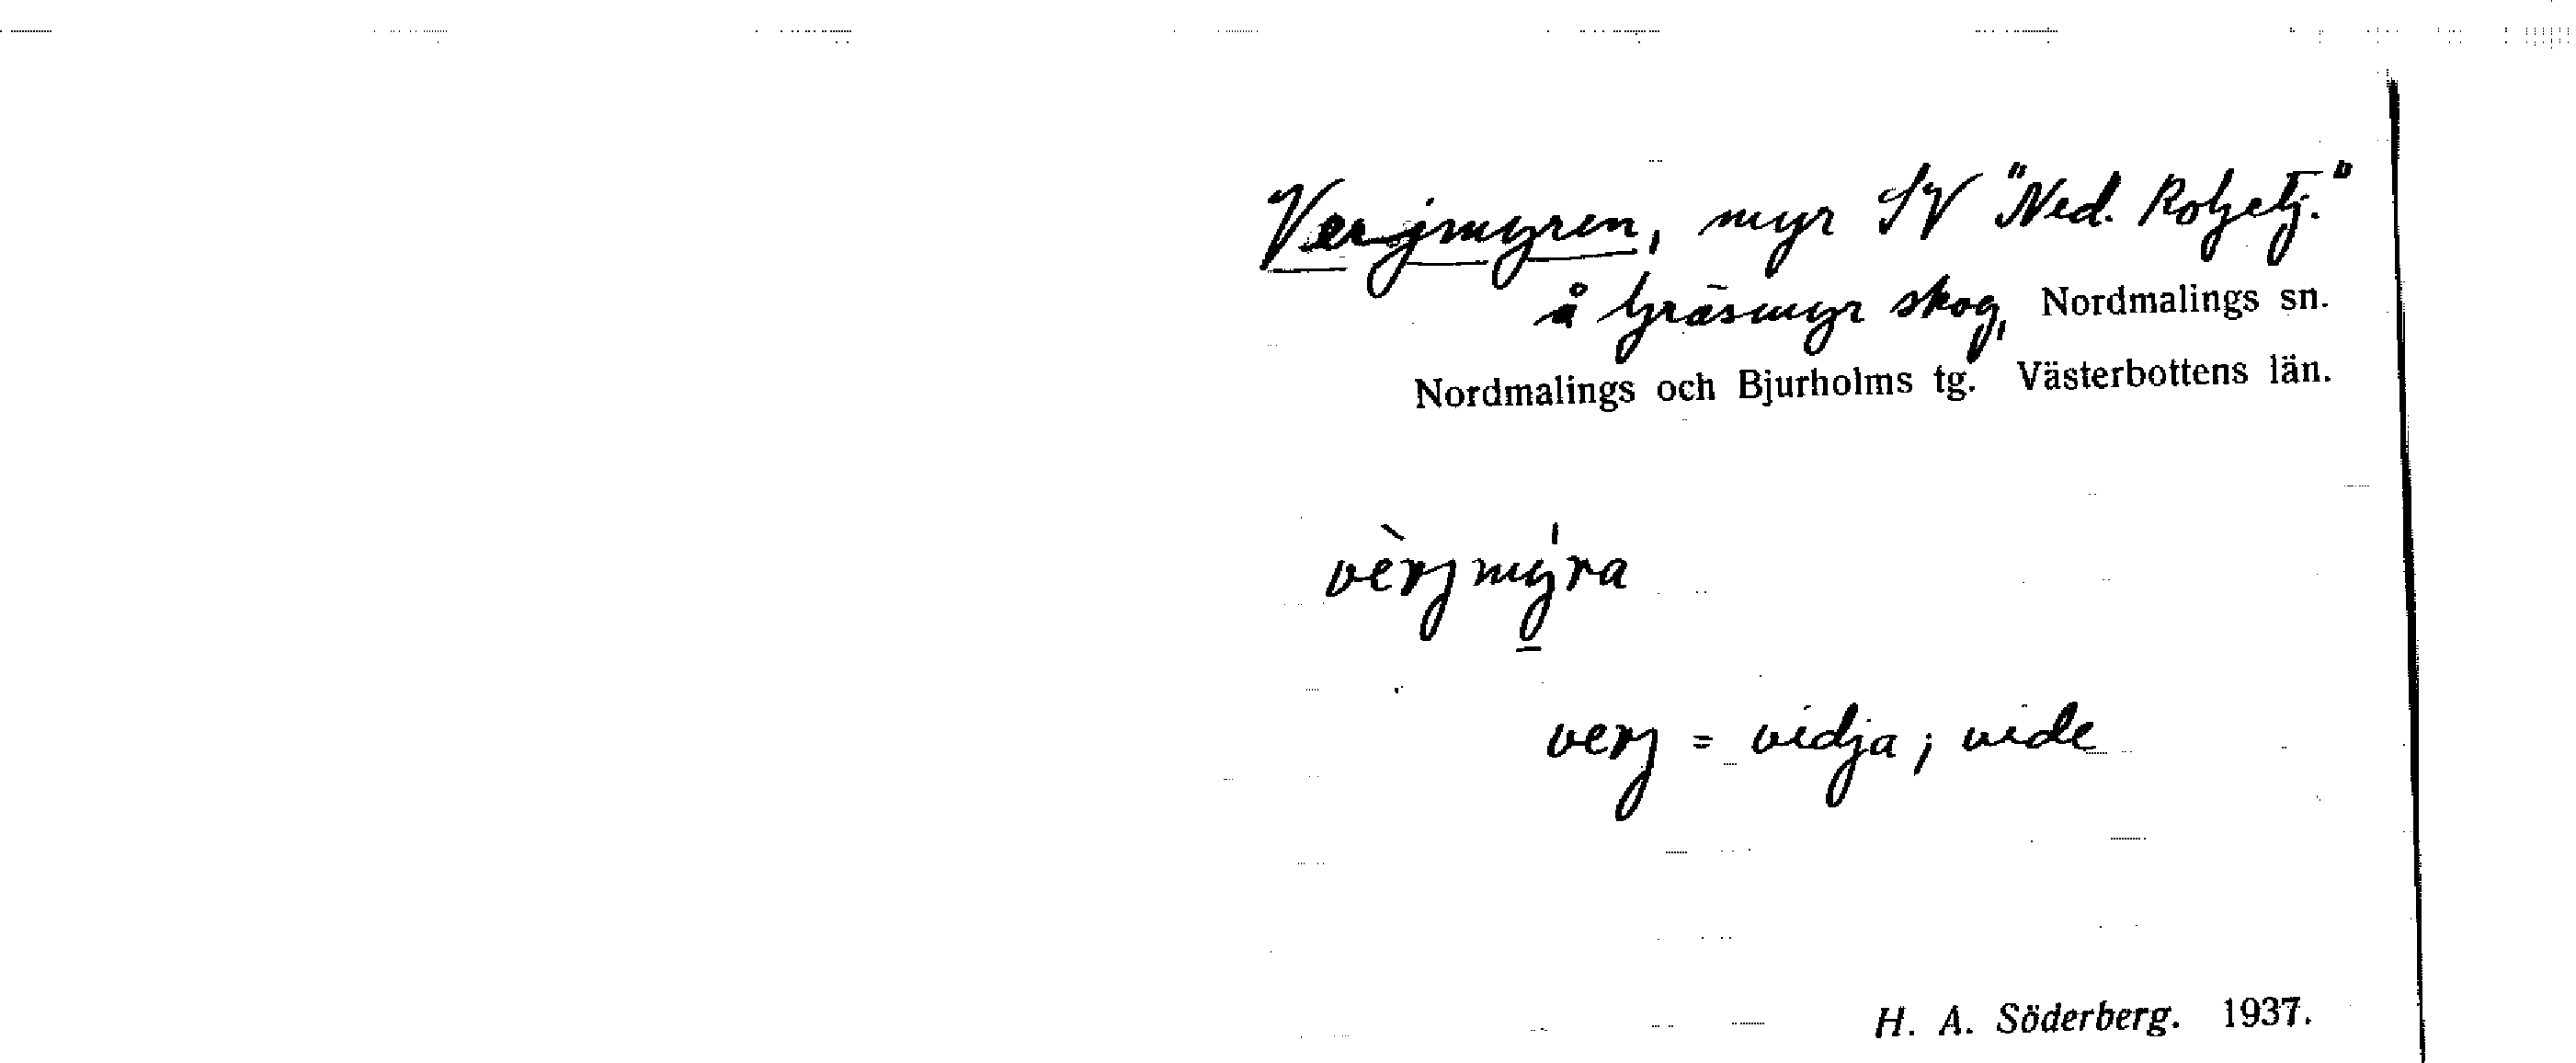 Verjmyren, myr SV "Ned.
å Gräsmyr skog, Nordmalings sn.
Nordmalings och Bjurholms tg. Västerbottens län.
vèrjmy̱'ra
verj = vidja; vide
H. A. Söderberg. 1937.